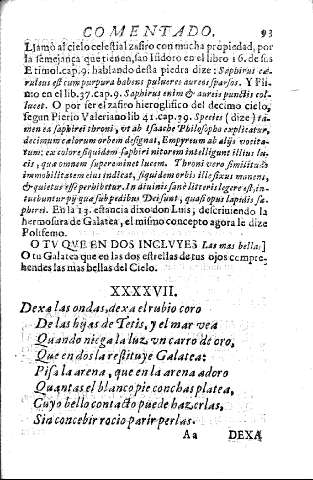 COMENTADO. 93
Llamò al cielo celestial zafiro con mucha propiedad, por
la semejança que tienen, san Isidoro en el libro 16. de sus
Etimol. cap. 9. hablando desta piedra dize: Saphirus cæ-
ruleus est cum purpura habens pulueres aureos sparsos. Y Pli-
nio en el lib. 37. cap. 9. Saphirus enim & aureis punctis col-
lucet. O por ser el zafiro hieroglifico del decimo cielo,
segun Pierio Valeriano lib 41. cap. 29. Species (dize) ta-
men ea saphirei throni, vt ab Isaache Philosopho explicatur,
decimum cælorum orbem designat, Empyreum ab alijs vocita-
tum: ex colore siquidem saphiri nitorem intelligunt illius lu-
cis, qua omnem supereminet lucem. Throni vero similitudo
immobilitatem eius indicat, siquidem orbis ille fixus manens,
& quietus esse perhibetur. In diuinis sanè litteris legere est, in-
tuebuntur pij quæ sub pedibus Dei sunt, quasi opus lapidis sa-
phirei. En la 13. estancia dixo don Luis, descriuiendo la
hermosura de Galatea, el mismo concepto agora le dize
Polifemo.
O TV QVE EN DOS INCLVYES Las mas bellas]
O tu Galatea que en las dos estrellas de tus ojos compre-
hendes las mas bellas del Cielo.
XXXXVII.
Dexa las ondas, dexa el rubio coro
De las hijas de Tetis, y el mar vea
Quando niega la luz vn carro de oro,
Que en dos la restituye Galatea:
Pisa la arena, que en la arena adoro
Quantas el blanco pie conchas platea,
Cuyo bello contacto puede hazerlas,
Sin concebir rocio parir perlas.
Aa DEXA